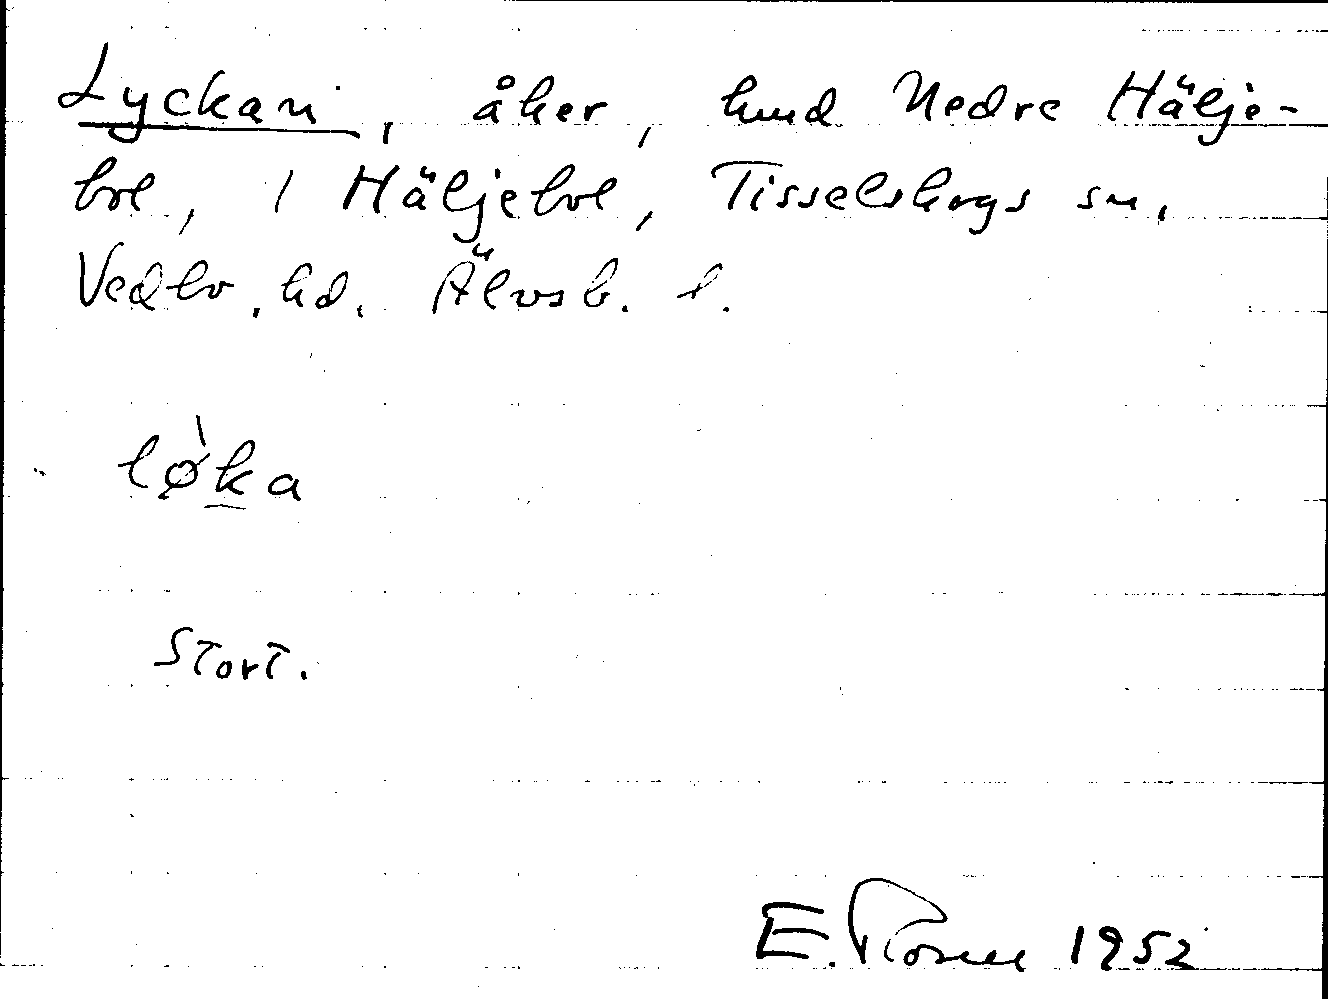 Lyckan, åker, hmd Nedre Hälje-
bol, 1 Häljebol, Tisselskogs sn,
Vedbo. hd. Älvsb. l.
lø̀k̲a
Stort.
E. Rosell 1952